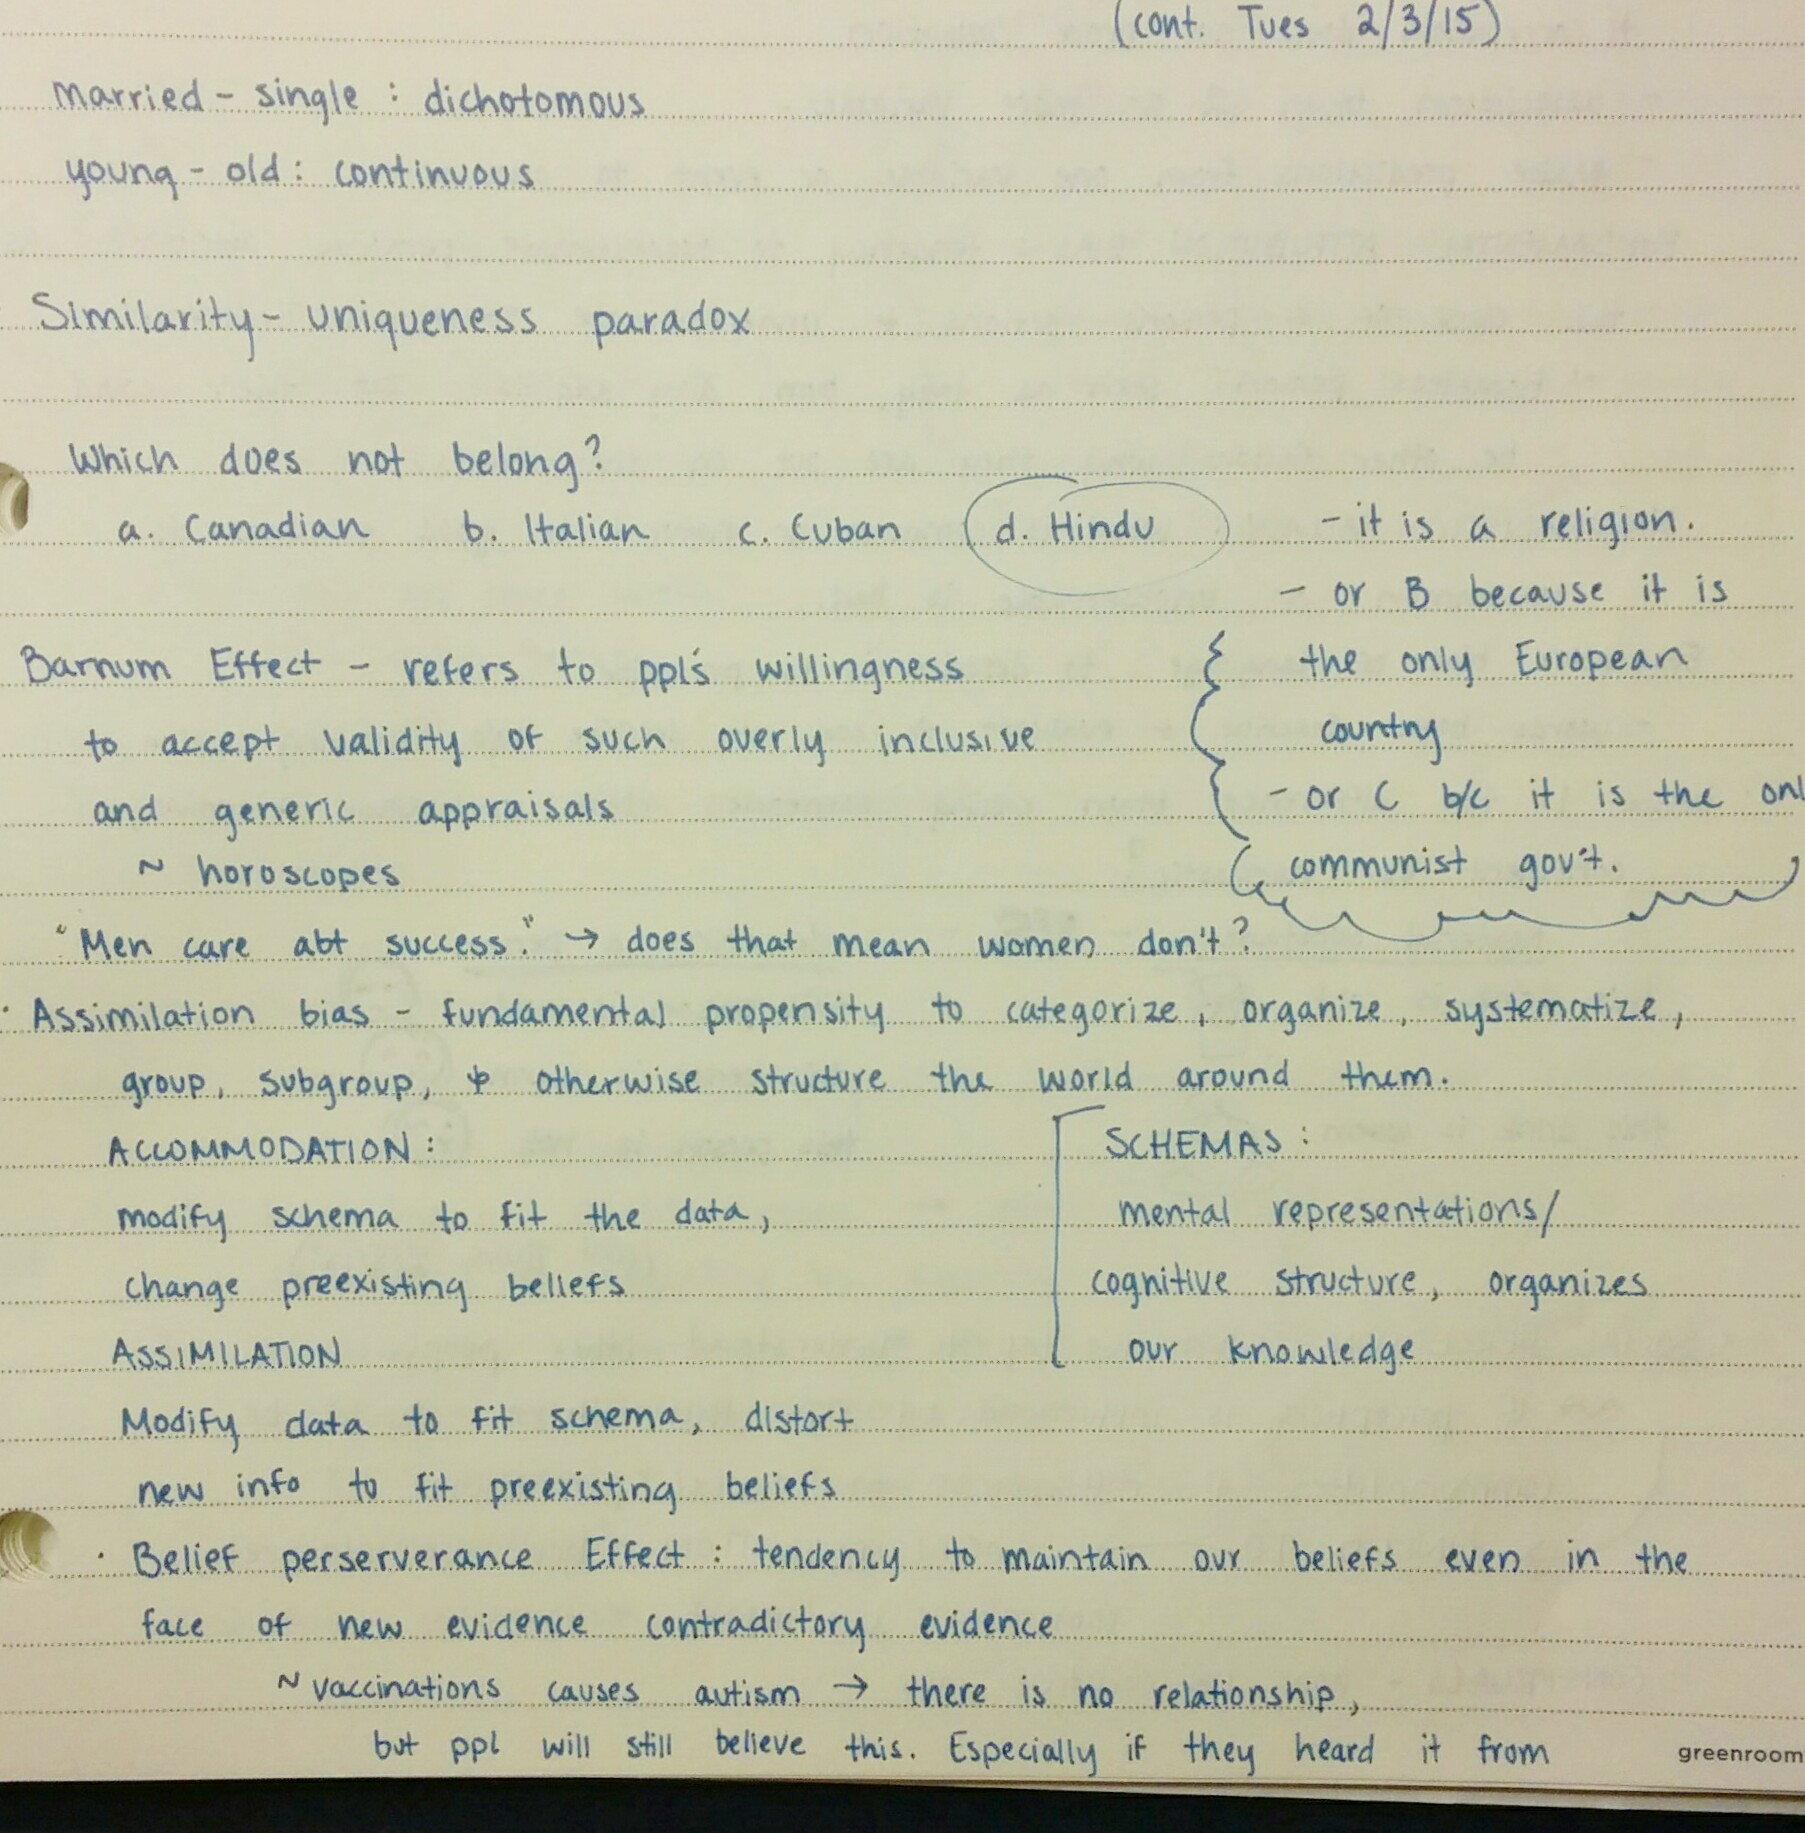 (cont. Tues 2/3/15)
married - single : dichotomous
young - old : continuous
Similarity - uniqueness paradox
Which does not belong?
a. Canadian b. Italian c. Cuban d. Hindu - it is a religion.
- or B because it is
the only European
country
- or C b/c it is the onl
communist gov't.
Barnum Effect - refers to ppl's willingness
to accept validity of such overly inclusive
and generic appraisals
~ horoscopes
"Men care abt success." → does that mean women don't?
· Assimilation bias - fundamental propensity to categorize, organize, systematize,
group, subgroup, & otherwise structure the world around them.
ACCOMMODATION :
modify schema to fit the data,
change preexisting beliefs
SCHEMAS :
mental representations/
cognitive structure, organizes
our knowledge
ASSIMILATION
Modify data to fit schema, distort
new info to fit preexisting beliefs
· Belief perserverance Effect : tendency to maintain our beliefs even in the
face of new evidence contradictory evidence
~ vaccinations causes autism → there is no relationship,
but ppl will still believe this. Especially if they heard it from
greenroom